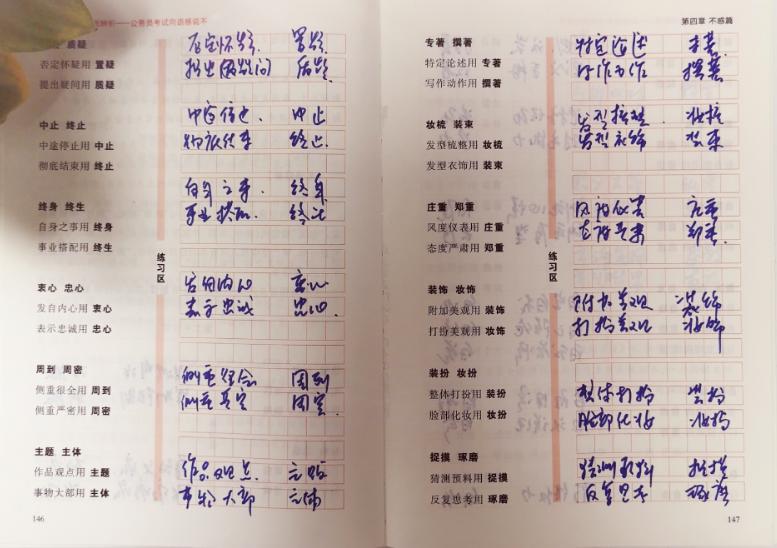 辨析——公务员考试同语感说不
质疑
否定怀疑用 置疑
提出疑问用 质疑
否定怀疑 置疑
提出疑问 质疑
中止 终止
中途停止用 中止
彻底结束用 终止
中途停止 中止
彻底结束 终止
终身 终生
自身之事用 终身
事业搭配用 终生
自身之事 终身
事业搭配 终生
衷心 忠心
发自内心用 衷心
表示忠诚用 忠心
发自内心 衷心
表示忠诚 忠心
周到 周密
侧重很全用 周到
侧重严密用 周密
侧重 周到
侧重 周密
主题 主体
作品观点用 主题
事物大部用 主体
作品观点 主题
事物大部 主体
练习区
146
第四章 不惑篇
专著 撰著
特定论述用 专著
写作动作用 撰著
特定论述 专著
写作动作 撰著
妆梳 装束
发型梳整用 妆梳
发型衣饰用 装束
发型梳整 妆梳
发型衣饰 装束
庄重 郑重
风度仪表用 庄重
态度严肃用 郑重
风度仪表 庄重
态度严肃 郑重
装饰 妆饰
附加美观用 装饰
打扮美观用 妆饰
附加美观 装饰
打扮美观 妆饰
装扮 妆扮
整体打扮用 装扮
脸部化妆用 妆扮
整体打扮 装扮
脸部化妆 妆扮
捉摸 琢磨
猜测预料用 捉摸
反复思考用 琢磨
猜测预料 捉摸
反复思考 琢磨
练习区
147